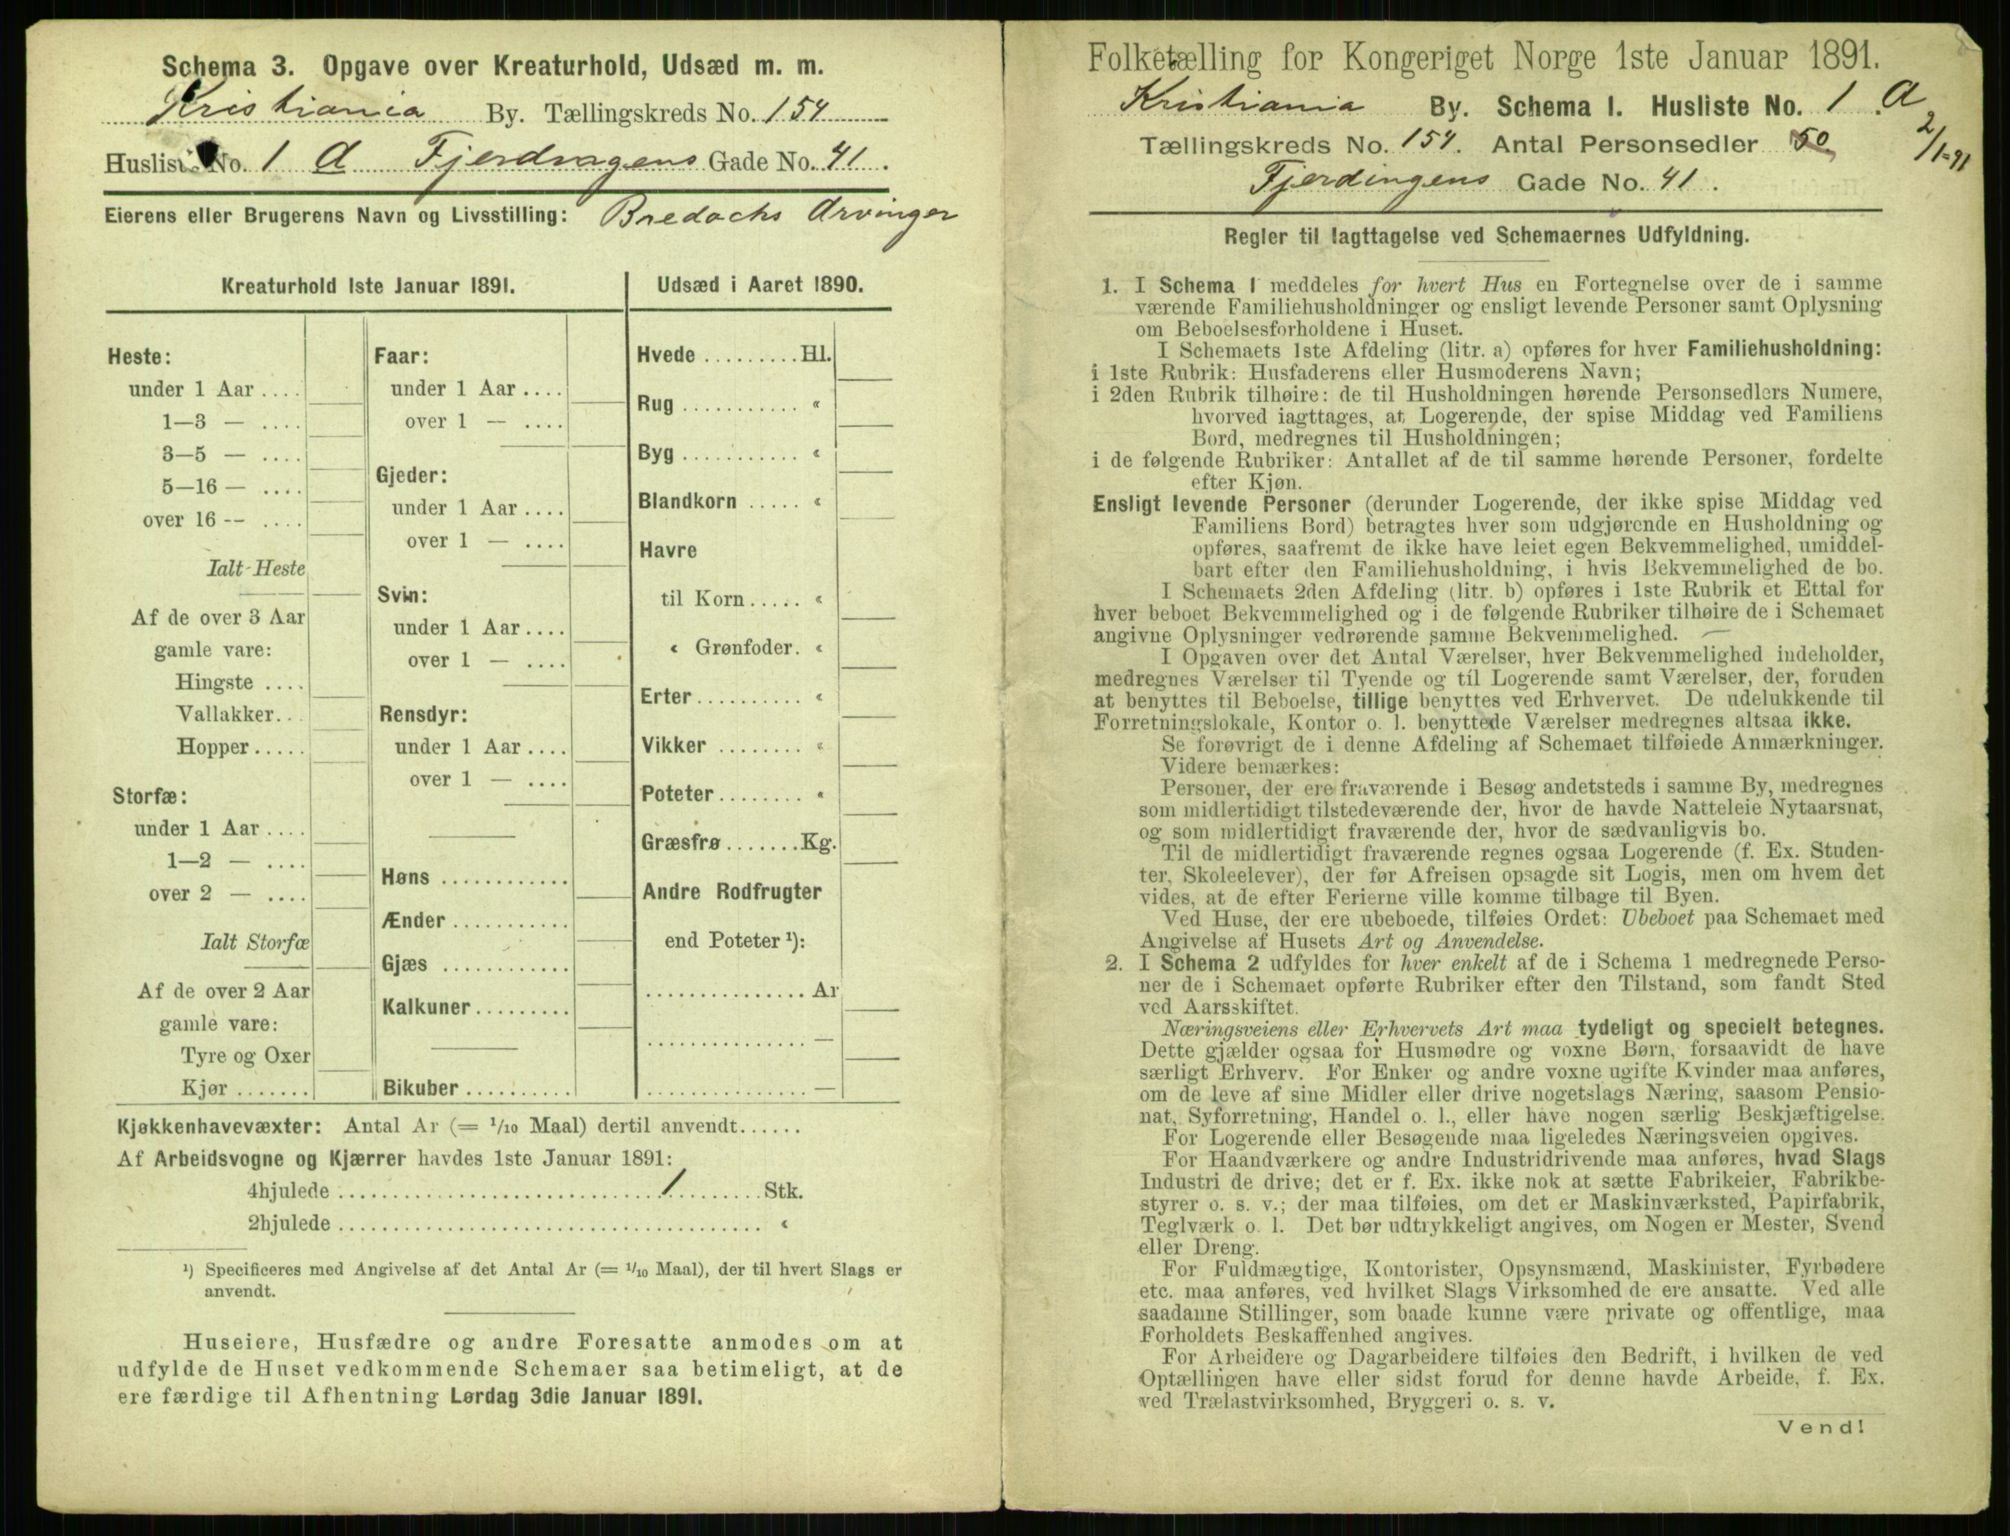 Schema 3. Opgave over Kreaturhold, Udsæd m. m.
Kristiania By. Tællingskreds No. 154
Husliste No. 1 A Fjerdingens Gade No. 41.
Eierens eller Brugerens Navn og Livsstilling: Bredochs Arvinger
Kreaturhold 1ste Januar 1891.
Heste:
under 1 Aar ....
1—3 — ....
3—5 — ....
5—16 — ....
over 16 -- ....
Ialt Heste
Af de over 3 Aar
gamle vare:
Hingste ....
Vallakker...
Hopper.....
Storfæ:
under 1 Aar ....
1—2 — ....
over 2 — ....
Ialt Storfæ
Af de over 2 Aar
gamle vare:
Tyre og Oxer
Kjør.......
Faar:
under 1 Aar ....
over 1 — ....
Gjeder:
under 1 Aar ....
over 1 — ....
Svin:
under 1 Aar ....
over 1 — ....
Rensdyr:
under 1 Aar ....
over 1 — ....
Høns ............
Ænder...........
Gjæs ............
Kalkuner.........
Bikuber..........
Udsæd i Aaret 1890.
Hvede .........Hl.
Rug ........... «
Byg ........... «
Blandkorn ..... «
Havre
til Korn..... «
« Grønfoder. «
Erter .......... «
Vikker ........ «
Poteter........ «
Græsfrø .......Kg.
Andre Rodfrugter
end Poteter ¹):
...............Ar
............... —
............... —
Kjøkkenhavevæxter: Antal Ar (= 1/10 Maal) dertil anvendt......
Af Arbeidsvogne og Kjærrer havdes 1ste Januar 1891:
4hjulede ..............................1.......Stk.
2hjulede ...................................... «
¹) Specificeres med Angivelse af det Antal Ar (= 1/10 Maal), der til hvert Slags er
anvendt.
Huseiere, Husfædre og andre Foresatte anmodes om at
udfylde de Huset vedkommende Schemaer saa betimeligt, at de
ere færdige til Afhentning Lørdag 3die Januar 1891.
Folketælling for Kongeriget Norge 1ste Januar 1891.
Kristiania By. Schema 1. Husliste No. 1 A
Tællingskreds No. 154. Antal Personsedler 50
2/1-91
Fjerdingens Gade No. 41.
Regler til Iagttagelse ved Schemaernes Udfyldning.
1. I Schema 1 meddeles for hvert Hus en Fortegnelse over de i samme
værende Familiehusholdninger og ensligt levende Personer samt Oplysning
om Beboelsesforholdene i Huset.
I Schemaets 1ste Afdeling (litr. a) opføres for hver Familiehusholdning:
i 1ste Rubrik: Husfaderens eller Husmoderens Navn;
i 2den Rubrik tilhøire: de til Husholdningen hørende Personsedlers Numere,
hvorved iagttages, at Logerende, der spise Middag ved Familiens
Bord, medregnes til Husholdningen;
i de følgende Rubriker: Antallet af de til samme hørende Personer, fordelte
efter Kjøn.
Ensligt levende Personer (derunder Logerende, der ikke spise Middag ved
Familiens Bord) betragtes hver som udgjørende en Husholdning og
opføres, saafremt de ikke have leiet egen Bekvemmelighed, umiddel-
bart efter den Familiehusholdning, i hvis Bekvemmelighed de bo.
I Schemaets 2den Afdeling (litr. b) opføres i 1ste Rubrik et Ettal for
hver beboet Bekvemmelighed og i de følgende Rubriker tilhøire de i Schemaet
angivne Oplysninger vedrørende samme Bekvemmelighed.
I Opgaven over det Antal Værelser, hver Bekvemmelighed indeholder,
medregnes Værelser til Tyende og til Logerende samt Værelser, der, foruden
at benyttes til Beboelse, tillige benyttes ved Erhvervet. De udelukkende til
Forretningslokale, Kontor o. l. benyttede Værelser medregnes altsaa ikke.
Se forøvrigt de i denne Afdeling af Schemaet tilføiede Anmærkninger.
Videre bemærkes:
Personer, der ere fraværende i Besøg andetsteds i samme By, medregnes
som midlertidigt tilstedeværende der, hvor de havde Natteleie Nytaarsnat,
og som midlertidigt fraværende der, hvor de sædvanligvis bo.
Til de midlertidigt fraværende regnes ogsaa Logerende (f. Ex. Studen-
ter, Skoleelever), der før Afreisen opsagde sit Logis, men om hvem det
vides, at de efter Ferierne ville komme tilbage til Byen.
Ved Huse, der ere ubeboede, tilføies Ordet: Ubeboet paa Schemaet med
Angivelse af Husets Art og Anvendelse.
2. I Schema 2 udfyldes for hver enkelt af de i Schema 1 medregnede Perso-
ner de i Schemaet opførte Rubriker efter den Tilstand, som fandt Sted
ved Aarsskiftet.
Næringsveiens eller Erhvervets Art maa tydeligt og specielt betegnes.
Dette gjælder ogsaa for Husmødre og voxne Børn, forsaavidt de have
særligt Erhverv. For Enker og andre voxne ugifte Kvinder maa anføres,
om de leve af sine Midler eller drive nogetslags Næring, saasom Pensio-
nat, Syforretning, Handel o. l., eller have nogen særlig Beskjæftigelse.
For Logerende eller Besøgende maa ligeledes Næringsveien opgives.
For Haandværkere og andre Industridrivende maa anføres, hvad Slags
Industri de drive; det er f. Ex. ikke nok at sætte Fabrikeier, Fabrikbe-
styrer o. s. v.; der maa tilføies, om det er Maskinværksted, Papirfabrik,
Teglværk o. l. Det bør udtrykkeligt angives, om Nogen er Mester, Svend
eller Dreng.
For Fuldmægtige, Kontorister, Opsynsmænd, Maskinister, Fyrbødere
etc. maa anføres, ved hvilket Slags Virksomhed de ere ansatte. Ved alle
saadanne Stillinger, som baade kunne være private og offentlige, maa
Forholdets Beskaffenhed angives.
For Arbeidere og Dagarbeidere tilføies den Bedrift, i hvilken de ved
Optællingen have eller sidst forud for denne havde Arbeide, f. Ex.
ved Trælastvirksomhed, Bryggeri o. s. v.
Vend!